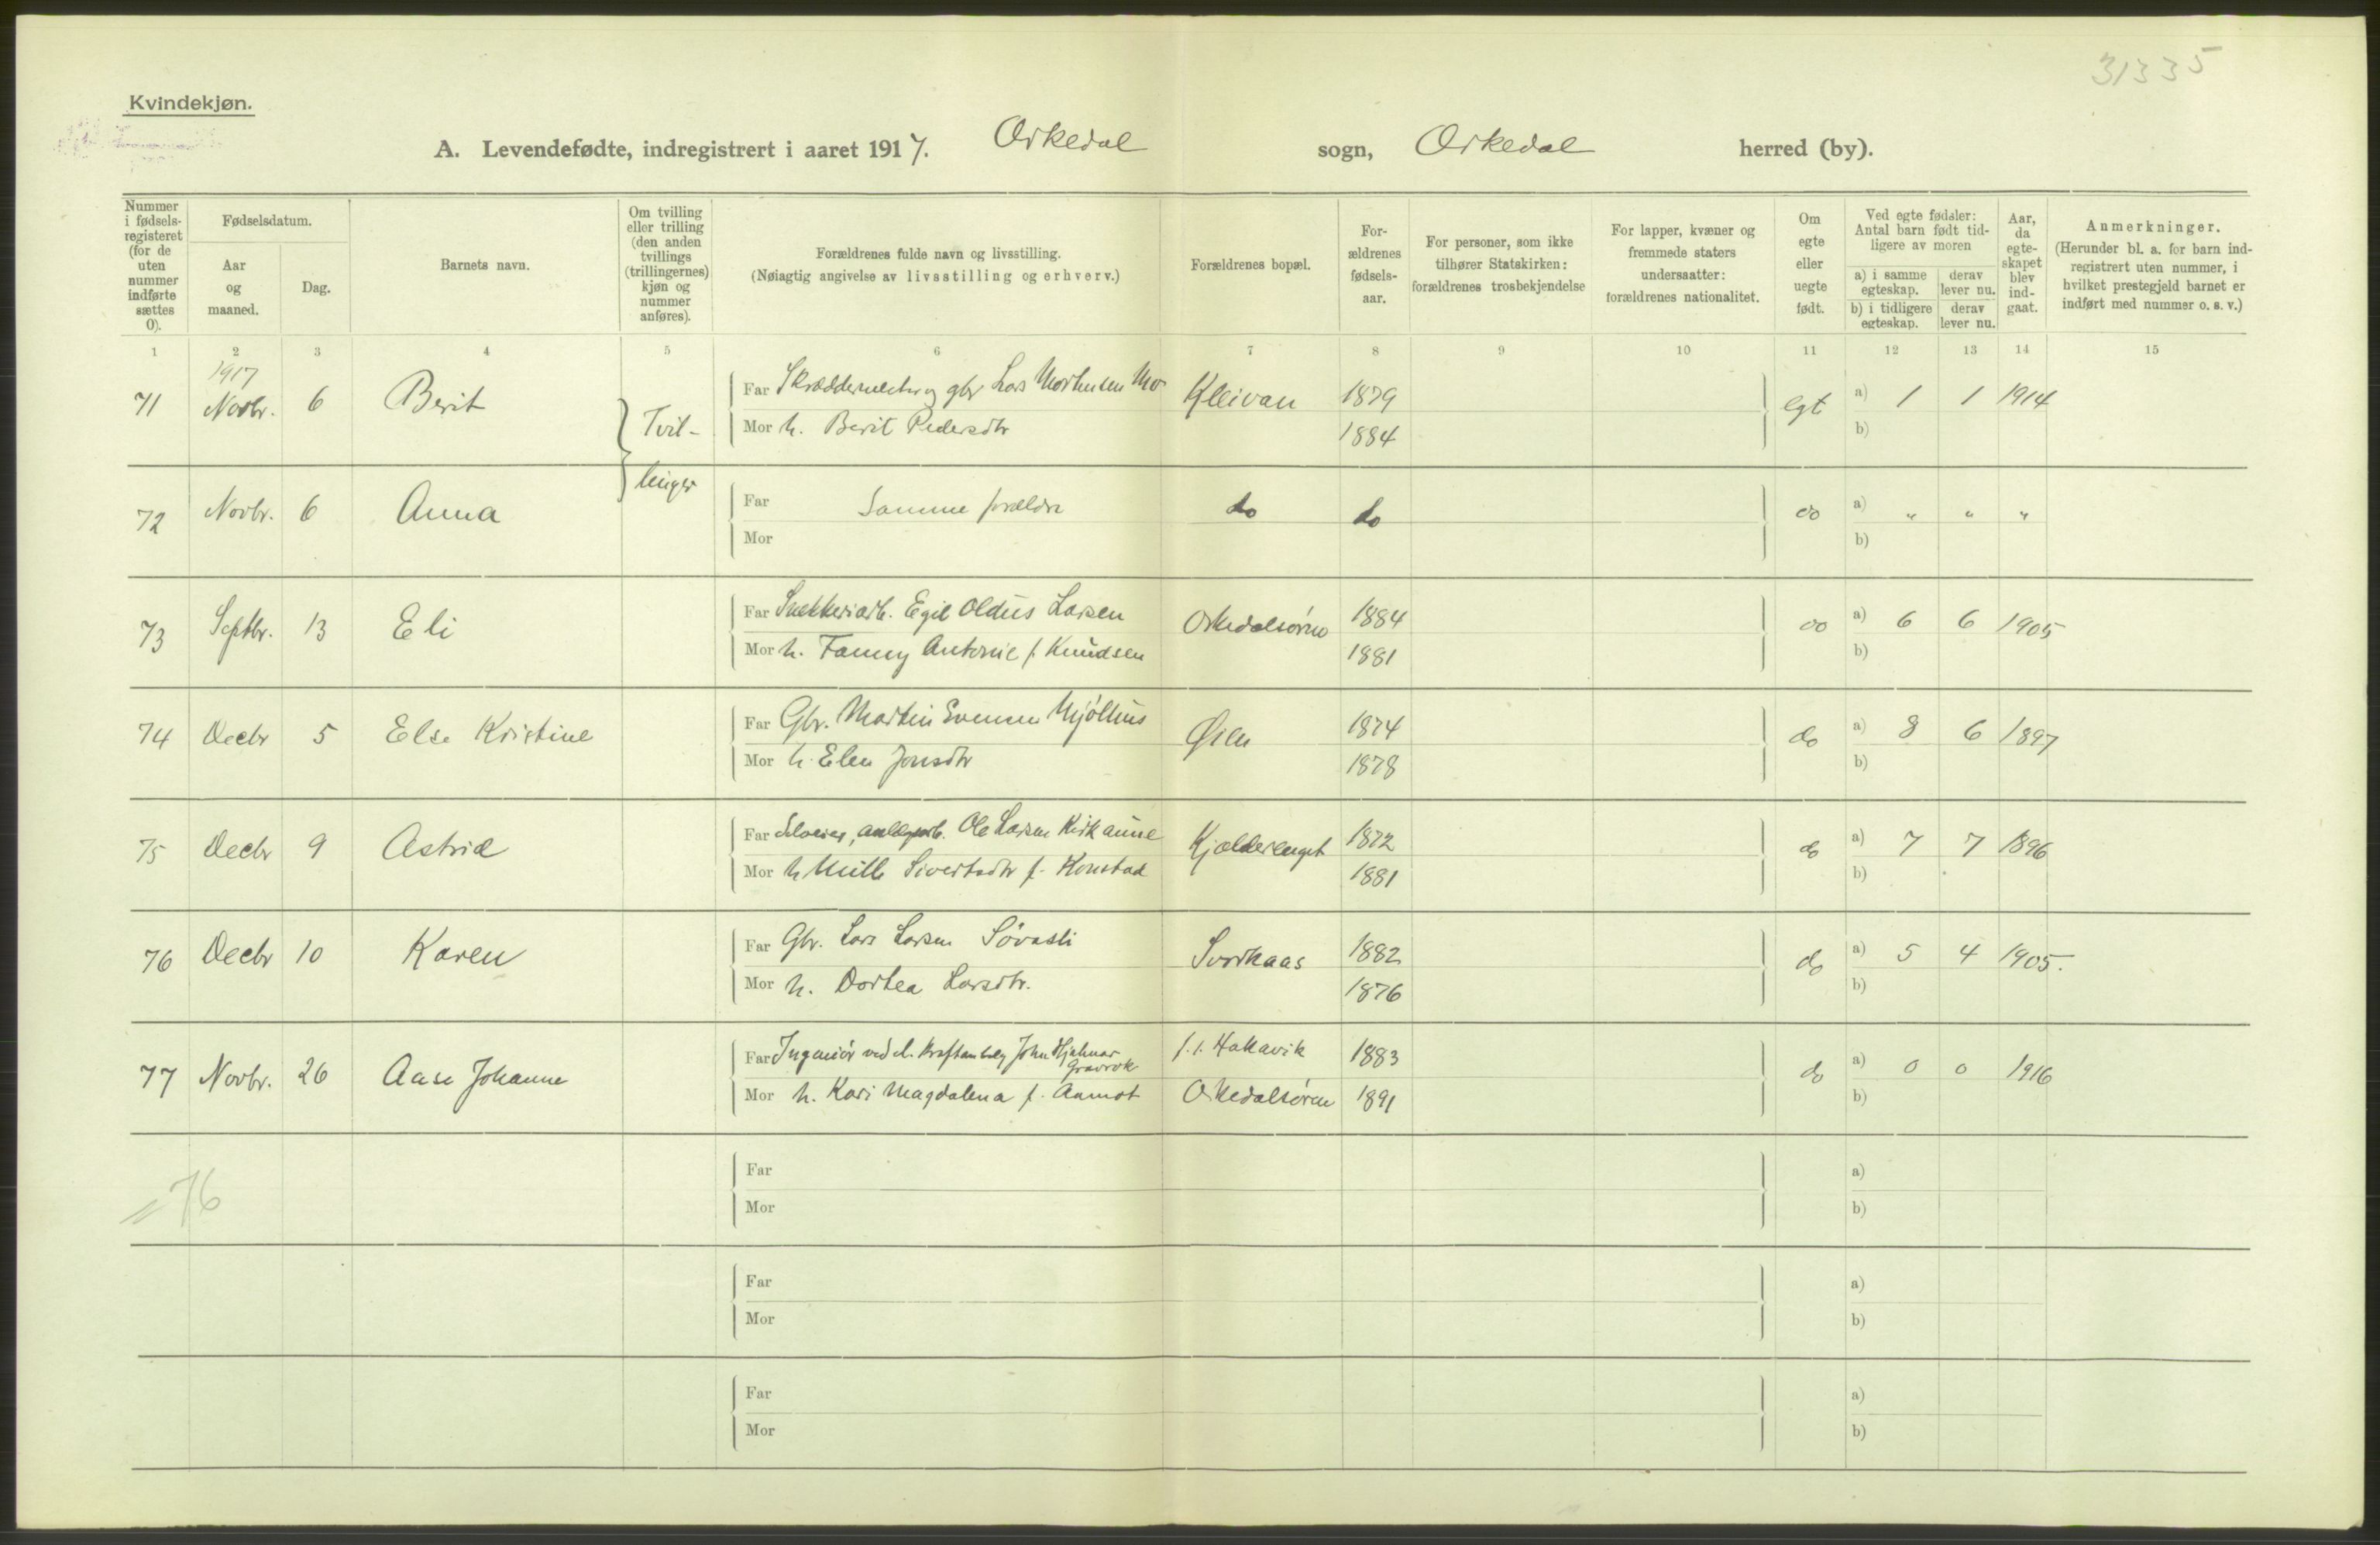 31335
Kvindekjøn.
A. Levendefødte, indregistrert i aaret 1917. Orkedal sogn, Orkedal herred (by).
Nummer i fødsels-registeret (for de uten nummer indførte sættes 0).
Fødselsdatum.
Aar og maaned.
Dag.
Barnets navn.
Om tvilling eller trilling (den anden tvillings (trillingernes) kjøn og nummer anføres).
Forældrenes fulde navn og livsstilling.
(Nøiagtig angivelse av livsstilling og erhverv.)
Forældrenes bopæl.
For-ældrenes fødsels-aar.
For personer, som ikke tilhører Statskirken: forældrenes trosbekjendelse
For lapper, kvæner og fremmede staters undersaatter: forældrenes nationalitet.
Om egte eller uegte født.
Ved egte fødsler: Antal barn født tid-ligere av moren
a) i samme egteskap.
derav lever nu.
b) i tidligere egteskap.
derav lever nu.
Aar, da egte-skapet blev ind-gaat.
Anmerkninger.
(Herunder bl. a. for barn ind-registrert uten nummer, i hvilket prestegjeld barnet er indført med nummer o. s. v.)
1 2 3 4 5 6 7 8 9 10 11 12 13 14 15
1917
71 Novbr. 6 Berit Tvil- Far Skræddermester og gbr Lars Mortensen Mo Kleivan 1879 egt a) 1 1 1914
Mor h. Berit Pedersdtr 1884 b)
linger
72 Novbr. 6 Anna Far Samme forældre do do do a) " " "
Mor b)
73 Septbr. 13 Eli Far Snekkeriarb. Egil Oldus Larsen Orkedalsøren 1884 do a) 6 6 1905
Mor h. Fanny Antonie f. Knudsen 1881 b)
74 Decbr 5 Else Kristine Far Gbr. Martin Evensen Mjølhus Øien 1874 do a) 8 6 1897
Mor h. Elen Jonsdtr 1878 b)
75 Decbr 9 Astrid Far Selveier, anlægsarb. Ole Larsen Kirkaune Kjælderenget 1872 do a) 7 7 1896
Mor h Sivertsdtr f. Konstad 1881 b)
76 Decbr 10 Karen Far Gbr. Lars Larsen Søvasli Svorkaas 1882 do a) 5 4 1905.
Mor h. Dortea Larsdtr. 1876 b)
77 Novbr. 26 Aase Johanne Far Ingeniør ved el. kraftanlæg John Hjalmar Gravrok f. t. Hakavik 1883 do a) 0 0 1916
Mor h. Kari Magdalena f. Aamot Orkedalsøren 1891 b)
= 76
Far a)
Mor b)
Far a)
Mor b)
Far a)
Mor b)